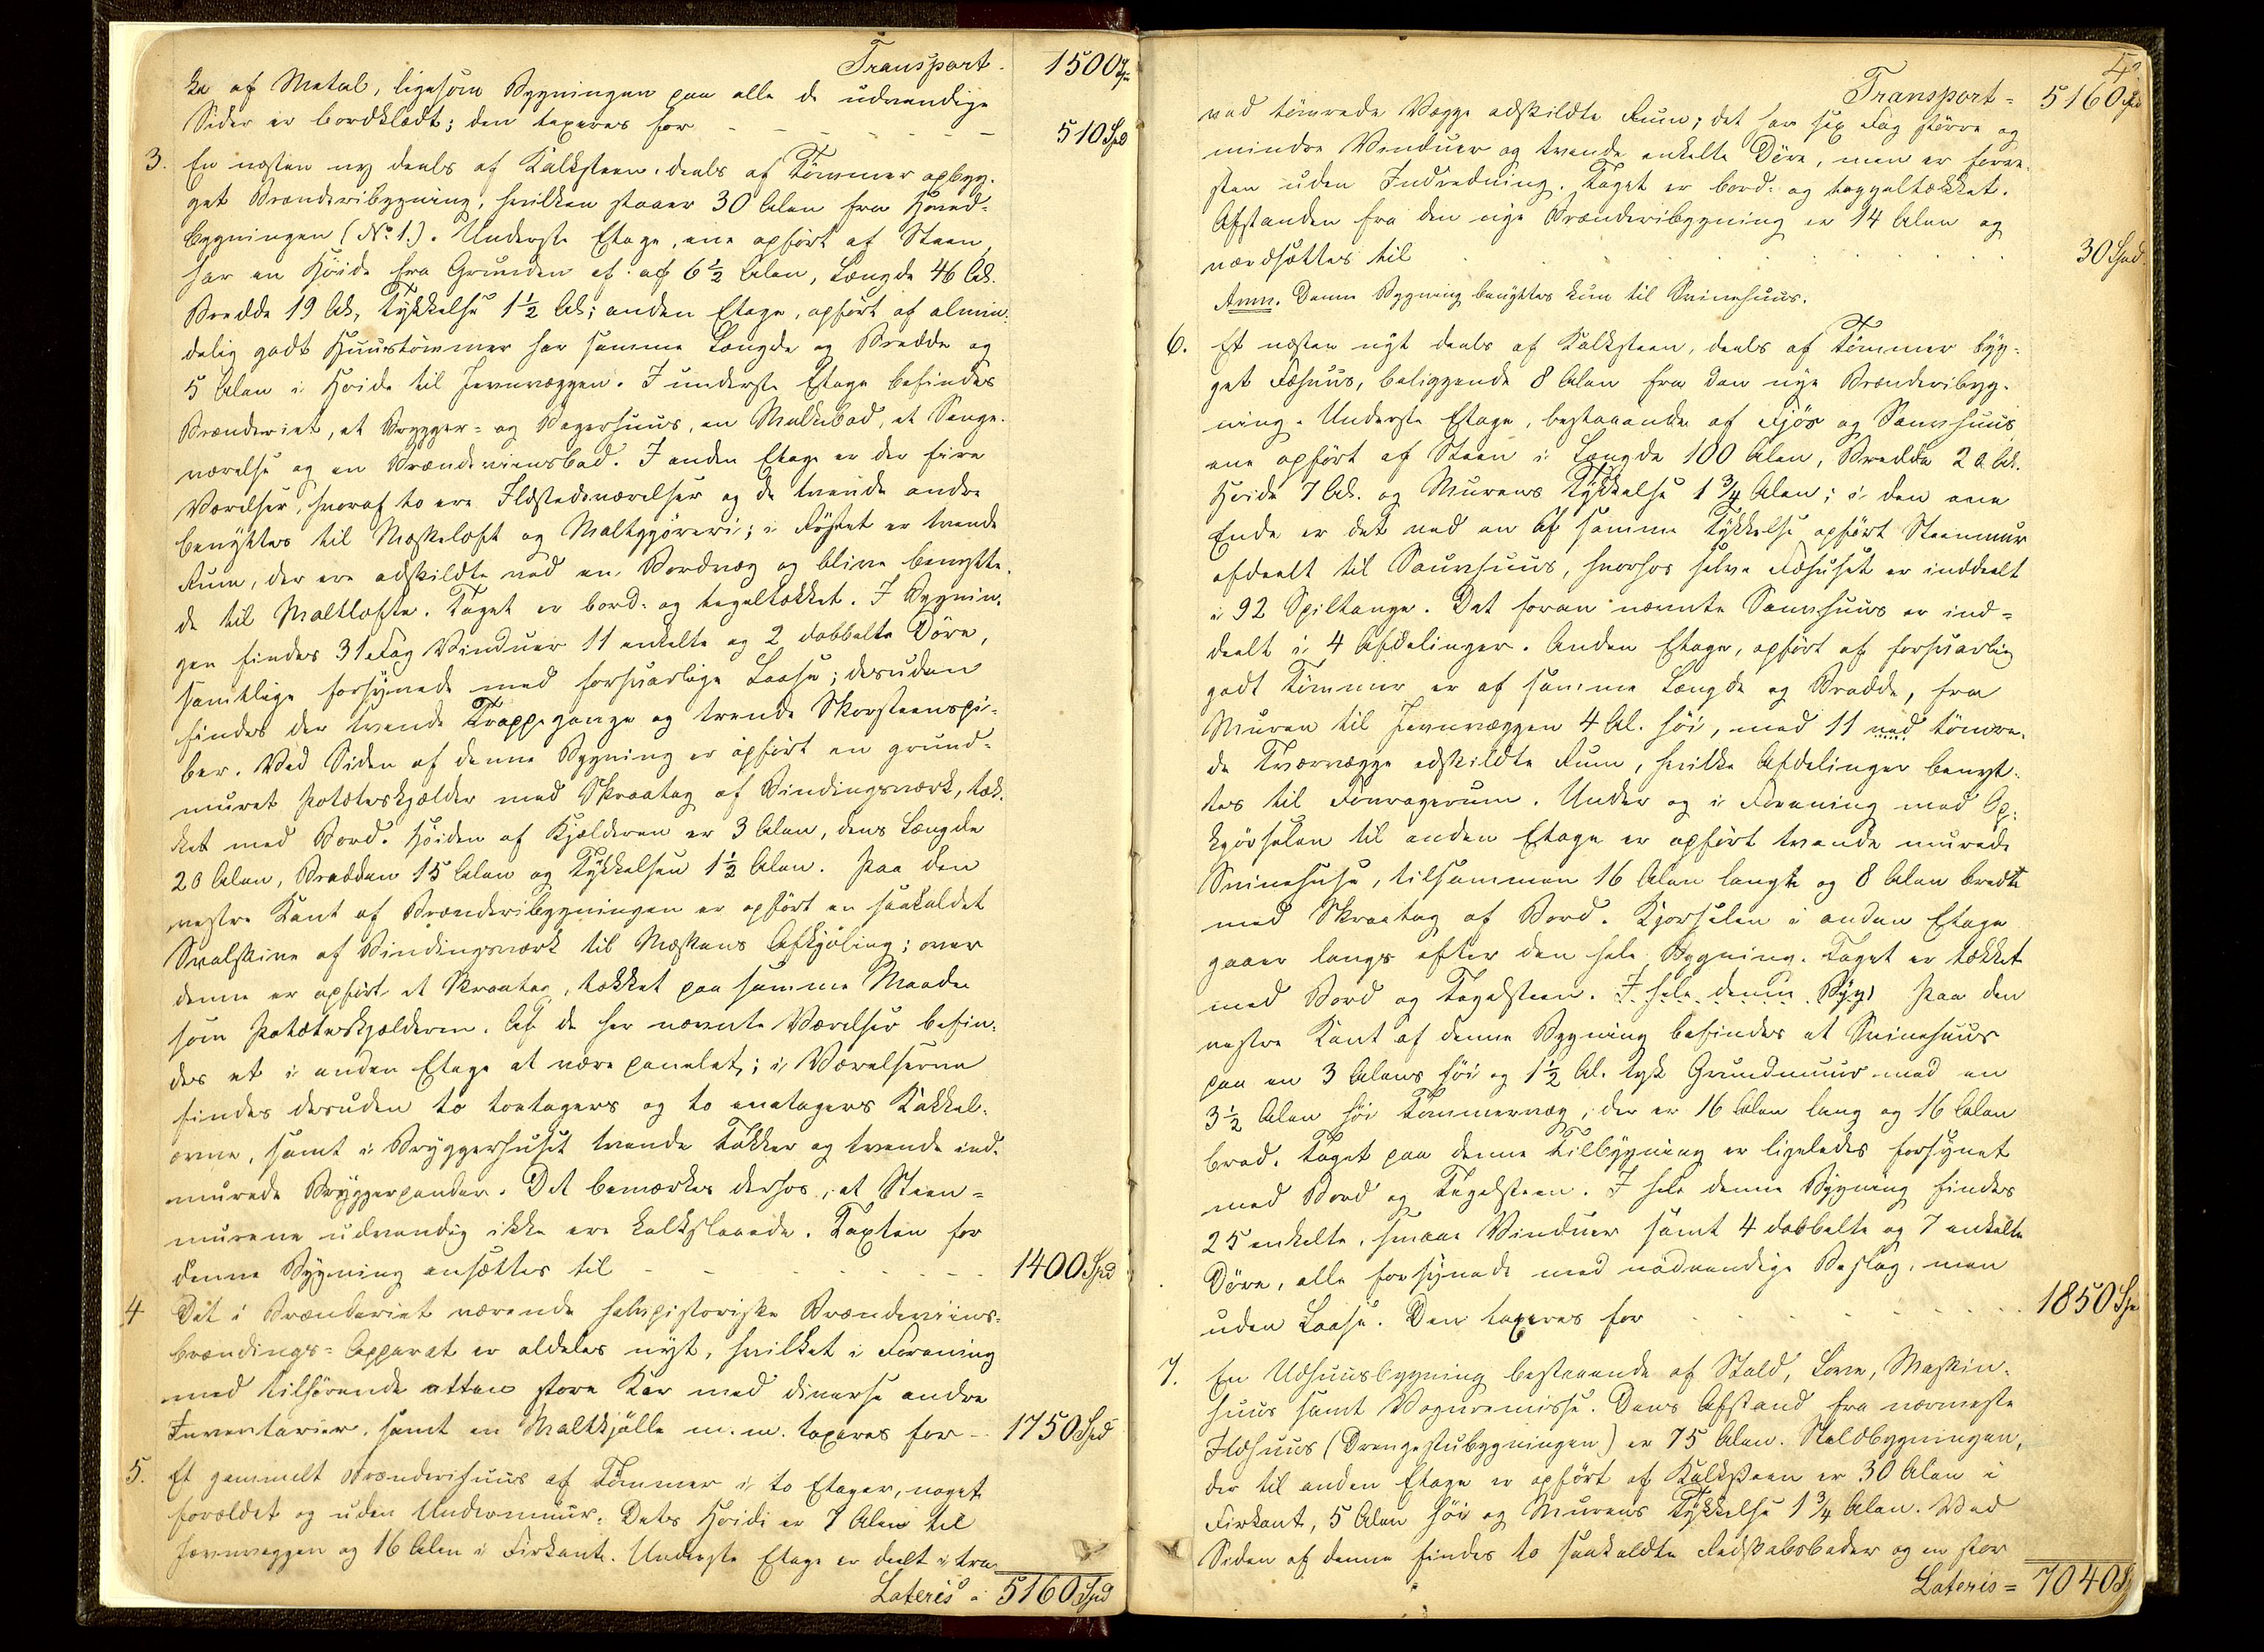 Transport. 1500 Sp
ke af Metal, ligesom Bygningen paa alle de udvendige
Sider er bordklædt; den taxeres for - - - - - 510 Spd
3. En næsten ny deels af Kalksteen, deels af Tömmer opbyg-
get Brænderibygning, hvilken staaer 30 Alen fra Hoved-
bygningen (No 1.). Underste Etage, ene opfört af Steen,
har en Höide fra Grunden af: af 6 1/2 Alen, Længde 46 Al.
Bredde 19 Al, Tykkelse 1 1/2 Al; anden Etage, opfört af almin-
delig godt Huustömmer har samme Længde og Bredde og
5 Alen i Höide til Jevnvæggen. I underste Etage befindes
Brænderiet, et Brygger= og Bagerhuus, en Melkebod, et Senge-
værelse og en Brændeviinsbod. I anden Etage er der fire
Værelser, hvoraf to ere Ildstedsværelser og de tvende andre
benyttes til Mæskeloft og Maltgjöreri; i Röstet er tvende
Rum, der ere adskildte ved en Bordvæg og blive benytte-
de til Maltlofte. Taget er bord- og tegeltækket. I Bygnin-
gen findes 31 Fag Vinduer 11 enkelte og 2 dobbelte Döre,
samtlige forsynede med forsvarlige Laase; desuden
findes der tvende Trappegange og trende Skorsteenspi-
ber. Ved Siden af denne Bygning er opfört en grund-
muret Potæteskjælder med Skraatag af Bindingsværk, tæk-
ket med Bord. Höiden af Kjælderen er 3 Alen, dens Længde
20 Alen, Bredden 15 Alen og Tykkelsen 1 1/2 Alen. Paa den
vestre Kant af Brænderibygningen er opfört en saakaldet
Svalskive af Bindingsværk til Mæskens Afkjöling; over
denne er opfört et Skraatag, tækket paa samme Maade
som Potæteskjælderen. Af de her nævnte Værelser befin-
des et i anden Etage at være panelet; i Værelserne
findes desuden to toetagers og to eenetagers Kakkel-
ovne, samt i Bryggerhuset tvende Takker og tvende ind-
murede Bryggerpander. Det bemærkes derhos, at Steen=
murene udvendig ikke ere kalkslaaede. Taxten for
denne Bygning ansættes til - - - - - - 1400 Spd
4 Det i Brænderiet værende halvpistoriske Brændeviins-
brændings= Apparat er aldeles nyt, hvilket i Forening
med tilhörende atten store Kar med diverse andre
Inventarier, samt en Maltkjölle m.m. taxeres for - 1750 Spd
5. Et gammelt Brænderihuus af Tömmer i to Etager, noget
forældet og uden Undermuur. Dets Höide er 7 Alen til
Jevnvæggen og 16 Alen i Firkant. Underste Etage er deelt i tre
Lateris = 5160 Spd
4
Transport = 5160 Spd
ved tömrede Vægge adskildte Rum; det har sex Fag större og
mindre Vinduer og tvende enkelte Döre, men er forre-
sten uden Indredning. Taget er bord- og teggeltækket.
Afstanden fra den nye Brænderibygning er 14 Alen og
værdsættes til . . . . . . . 30 Spd.
Anm. Denne Bygning benyttes kun til Sviinehuus.
6. Et næsten nyt deels af Kalksteen, deels af Tömmer byg-
get Fæhuus, beliggende 8 Alen fra den nye Brænderibyg-
ning. Underste Etage, bestaaende af Fjös og Sauehuus
ene opfört af Steen i Længde 100 Alen, Bredde 20 Al.
Höide 7 Al. og Murens Tykkelse 1 3/4 Alen; i den ene
Ende er det ved en af samme Tykkelse opfört Steenmuur
afdeelt til Sauehuus, hvorhos selve Fæhuset er inddeelt
i 92 Spiltauge. Det foran nævnte Sauehuus er ind=
deelt i 4 Afdelinger. Anden Etage, opfört af forsvarlig
godt Tömmer er af samme Længde og Bredde, fra
Muren til Jevnvæggen 4 Al. höi, med 11 ved tömre-
de Tværvægge adskildte Rum, hvilke Afdelinger benyt-
tes til Fouragerum. Under og i Forening med Op-
kjörselen til anden Etage er opfört tvende murede
Svinehuse, tilsammen 16 Alen langt og 8 Alen bredt
med Skraatag af Bord. Kjörselen i anden Etage
gaaer langs efter den hele Bygning. Taget er tækket
med Bord og Tegelsteen. I hele denne Byg Paa den
vestre Kant af denne Bygning befindes et Svinehuus
paa en 3 Alens höi og 1 1/2 Al. tyk Grundmuur med en
3 1/2 Alen höi Tömmervæg, der er 16 Alen lang og 16 Alen
bred. Taget paa denne Tilbygning er ligeledes forsynet
med Bord og Tegelsteen. I hele denne Bygning findes
25 enkelte, smaae Vinduer samt 4 dobbelte og 7 enkelte
Döre, alle forsynede med nödvendige Beslag, men
uden Laase. Den taxeres for . . . . . 1850 Sp
7. En Udhuusbygning bestaaende af Stald, Lave, Maskin-
huus samt Vognremisse. Dens Afstand fra nærmeste
Ildhuus (Drengestubygningen) er 75 Alen. Staldbygningen,
der til anden Etage er opfört af Kalksteen er 30 Alen i
Firkant, 5 Alen höi og Murens Tykkelse 1 3/4 Alen. Ved
Siden af denne findes to saakaldte Redskabsboder og en stor
Lateris = 7040 S